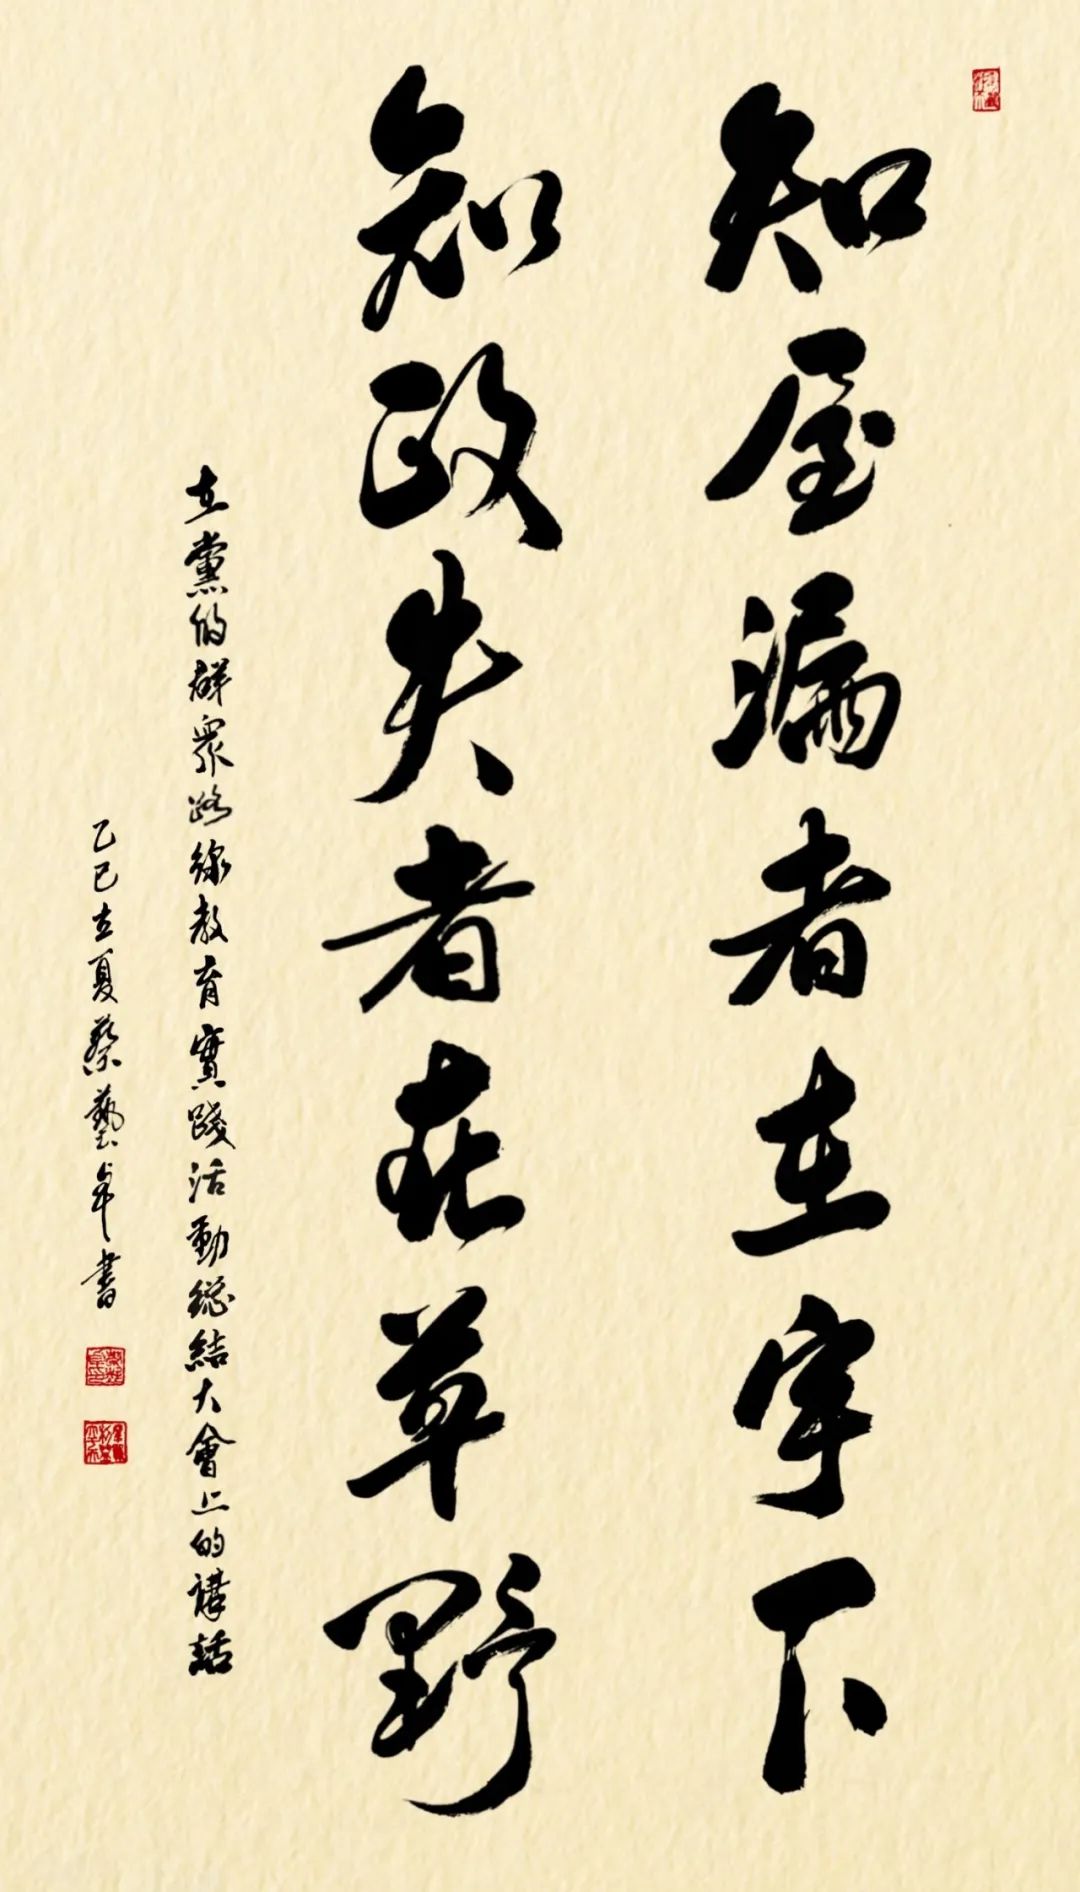 知屋漏者在宇下
知政失者在草野
在黨的群眾路線教育實踐活動總結大會上的講話
乙巳立夏蔡藝卓書